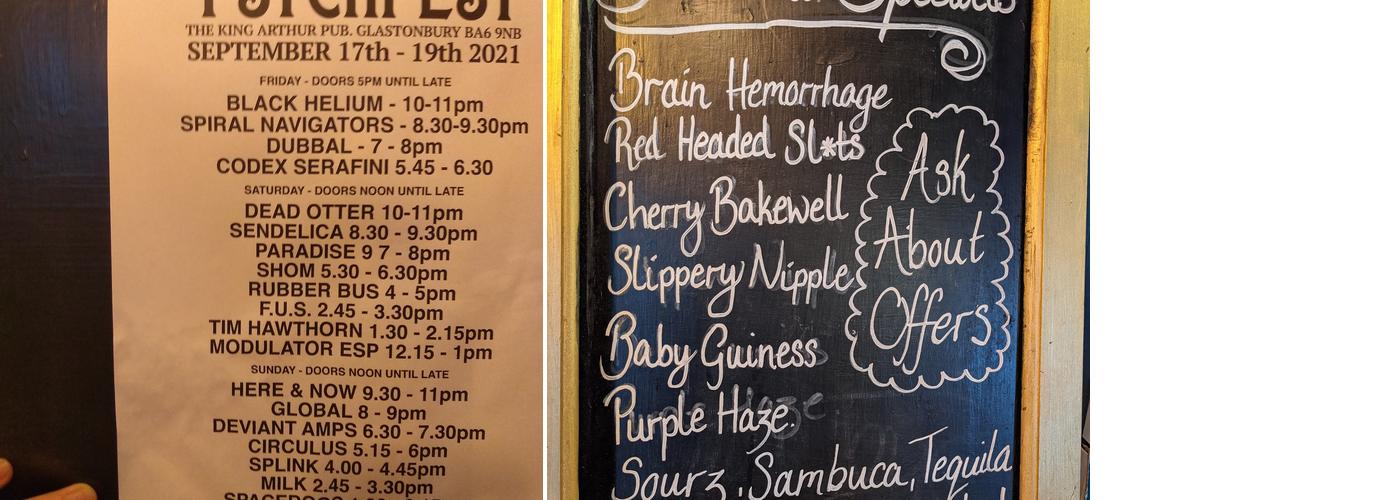 PSYCHFEST
THE KING ARTHUR PUB. GLASTONBURY BA6 9NB
SEPTEMBER 17th - 19th 2021
FRIDAY - DOORS 5PM UNTIL LATE
BLACK HELIUM - 10-11pm
SPIRAL NAVIGATORS - 8.30-9.30pm
DUBBAL - 7 - 8pm
CODEX SERAFINI 5.45 - 6.30
SATURDAY - DOORS NOON UNTIL LATE
DEAD OTTER 10-11pm
SENDELICA 8.30 - 9.30pm
PARADISE 9 7 - 8pm
SHOM 5.30 - 6.30pm
RUBBER BUS 4 - 5pm
F.U.S. 2.45 - 3.30pm
TIM HAWTHORN 1.30 - 2.15pm
MODULATOR ESP 12.15 - 1pm
SUNDAY - DOORS NOON UNTIL LATE
HERE & NOW 9.30 - 11pm
GLOBAL 8 - 9pm
DEVIANT AMPS 6.30 - 7.30pm
CIRCULUS 5.15 - 6pm
SPLINK 4.00 - 4.45pm
MILK 2.45 - 3.30pm
Specials
Brain Hemorrhage
Red Headed Sl*ts
Cherry Bakewell
Slippery Nipple
Baby Guiness
Purple Haze.
Sourz, Sambuca, Tequila
Ask
About
Offers